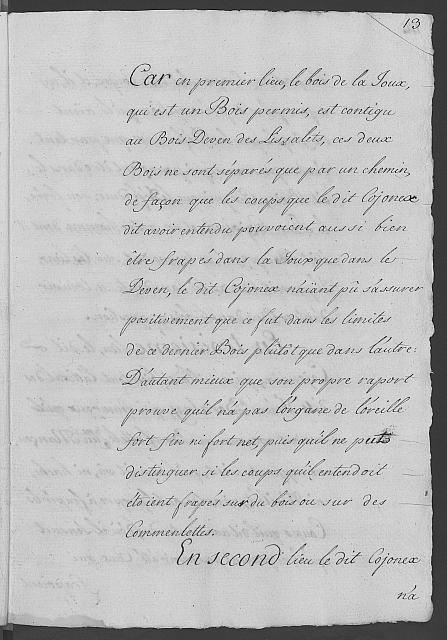 13
Car en premier lieu, le bois de la Joux,
qui est un Bois permis, est contigu
au Bois Deven des Lissalets, ces deux
Bois ne sont séparés que par un chemin,
de façon que les coups que le dit Cojonex
dit avoir entendu pouvoient aussi bien
être frapés dans la Joux que dans le
Deven, le dit Cojonex n'aïant pû s'assurer
positivement que ce fut dans les limites
de ce dernier Bois plûtôt que dans l'autre:
D'autant mieux que son propre raport
prouve qu'il n'a pas l'organe de l'oreille
fort fin ni fort net, puis qu'il ne put
distinguer si les coups qu'il entendoit
étoient frapés sur du bois ou sur des
Commenlottes.
En second lieu le dit Cojonex
n'a